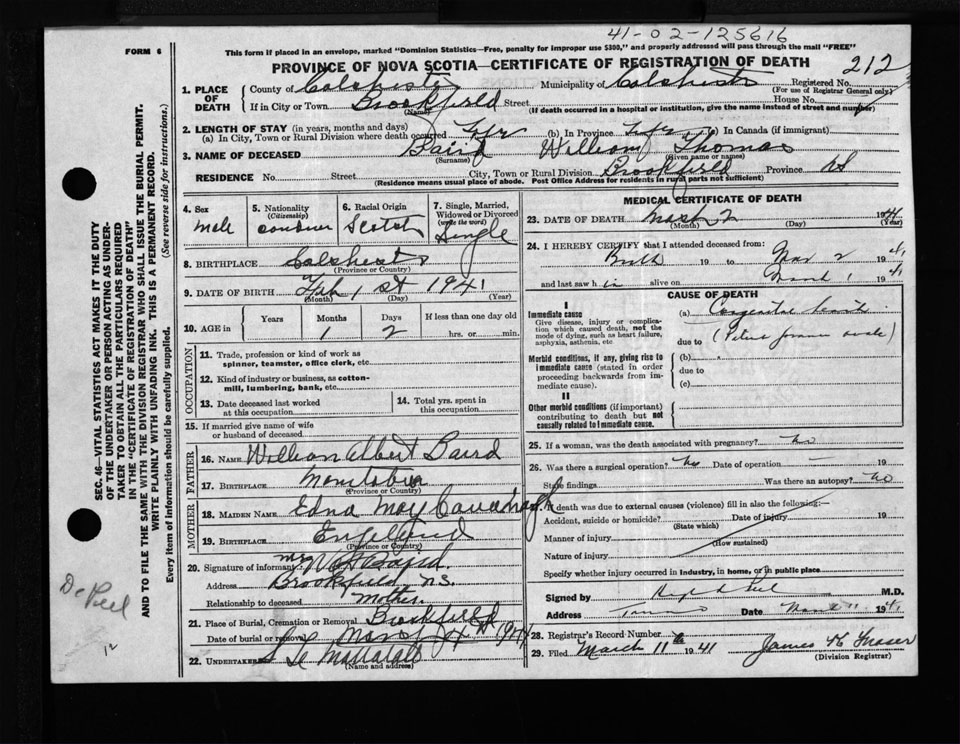 41-02-125616
FORM 6
This form if placed in an envelope, marked "Dominion Statistics—Free, penalty for improper use $300," and properly addressed will pass through the mail "FREE"
PROVINCE OF NOVA SCOTIA—CERTIFICATE OF REGISTRATION OF DEATH
212
1. PLACE OF DEATH
County of Colchester Municipality of Colchester Registered No.
(For use of Registrar General only)
If in City or Town Brookfield Street House No.
(Name) (If death occurred in a hospital or institution, give the name instead of street and number)
2. LENGTH OF STAY (in years, months and days)
(a) In City, Town or Rural Division where death occurred (b) In Province (c) In Canada (if immigrant)
3. NAME OF DECEASED Baird William Thomas
(Surname) (Given name or names)
RESIDENCE No. Street City, Town or Rural Division Brookfield Province NS
(Residence means usual place of abode. Post Office Address for residents in rural parts not sufficient)
4. Sex male
5. Nationality (Citizenship)
6. Racial Origin Scotch
7. Single, Married, Widowed or Divorced (write the word) Single
8. BIRTHPLACE Colchester
(Province or Country)
9. DATE OF BIRTH Feb 1st 1941
(Month) (Day) (Year)
10. AGE in Years Months Days If less than one day old
1 2 hrs. or min.
OCCUPATION
11. Trade, profession or kind of work as spinner, teamster, office clerk, etc
12. Kind of industry or business, as cotton-mill, lumbering, bank, etc
13. Date deceased last worked at this occupation
14. Total yrs. spent in this occupation
15. If married give name of wife or husband of deceased
FATHER
16. NAME William Albert Baird
17. BIRTHPLACE Manitoba
(Province or Country)
MOTHER
18. MAIDEN NAME Edna May Cavanagh
19. BIRTHPLACE England
(Province or Country)
20. Signature of informant Mrs W A Baird.
Address Brookfield N.S.
Relationship to deceased Mother
21. Place of Burial, Cremation or Removal Brookfield
Date of burial or removal
22. UNDERTAKER
(Name and address)
MEDICAL CERTIFICATE OF DEATH
23. DATE OF DEATH March 2 1941
(Month) (Day) (Year)
24. I HEREBY CERTIFY that I attended deceased from:
Birth 19 to Mar 2 1941
and last saw h im alive on March 1 1941
CAUSE OF DEATH
I
Immediate cause
Give disease, injury or complication which caused death, not the mode of dying, such as heart failure, asphyxia, asthenia, etc
(a) Congenital heart
due to
Morbid conditions, if any, giving rise to immediate cause (stated in order proceeding backwards from immediate cause).
(b)
due to
(c)
II
Other morbid conditions (if important) contributing to death but not causally related to immediate cause.
25. If a woman, was the death associated with pregnancy? no
26. Was there a surgical operation? no Date of operation — 19
State findings Was there an autopsy? no
27. If death was due to external causes (violence) fill in also the following:—
Accident, suicide or homicide? Date of injury 19
(State which)
Manner of injury
(How sustained)
Nature of injury
Specify whether injury occurred in industry, in home, or in public place
Signed by M.D.
Address Date March 11 1941
28. Registrar's Record Number
29. Filed March 11th 1941 James K Fraser
(Division Registrar)
SEC. 46—VITAL STATISTICS ACT MAKES IT THE DUTY OF THE UNDERTAKER OR PERSON ACTING AS UNDERTAKER TO OBTAIN ALL THE PARTICULARS REQUIRED IN THE "CERTIFICATE OF REGISTRATION OF DEATH"
AND TO FILE THE SAME WITH THE DIVISION REGISTRAR WHO SHALL ISSUE THE BURIAL PERMIT.
WRITE PLAINLY WITH UNFADING INK. THIS IS A PERMANENT RECORD.
Every item of information should be carefully supplied. (See reverse side for instructions.)
Dr Peel
12